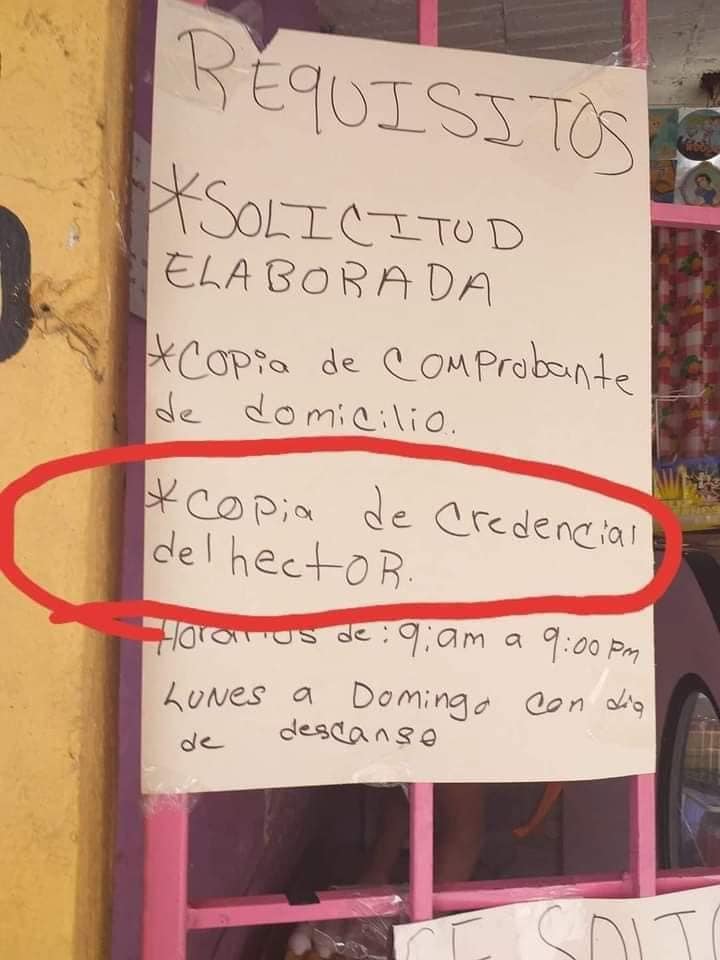 REQUISITOS
*SOLICITUD
ELABORADA
*COPia de COMProbante
de domicilio.
*COPia de Credencial
del hectOR.
Horarios de: 9:am a 9:00 Pm
LUNes a Domingo con dia
de descanso
SE SOLIC